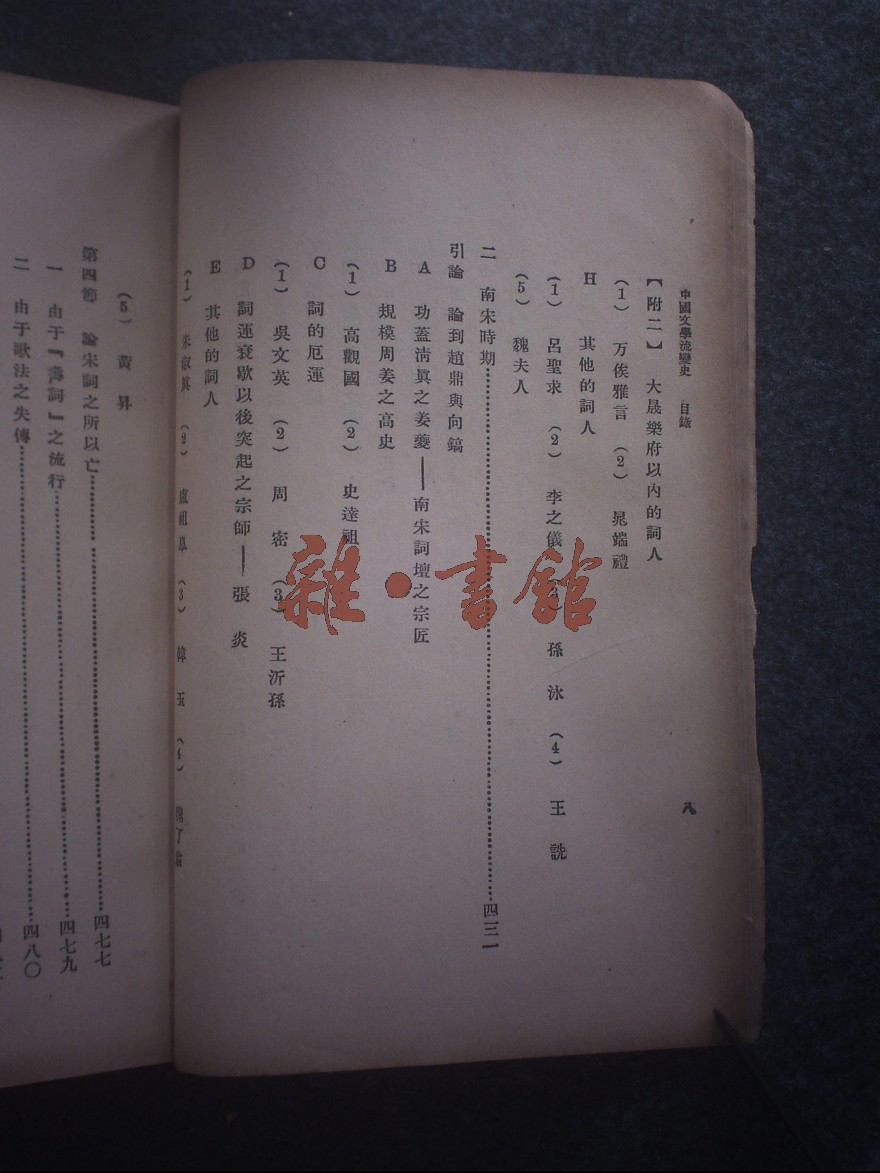 中國文學流變史　目錄
八
【附二】　大晟樂府以內的詞人
（1）　万俟雅言　（2）　晁端禮
H　其他的詞人
（1）　呂聖求　（2）　李之儀　（3）　孫　洙　（4）　王　詵
（5）　魏夫人
二　南宋時期……四三一
引論　論到趙鼎與向鎬
A　功蓋淸眞之姜夔——南宋詞壇之宗匠
B　規模周姜之高史
（1）　高觀國　（2）　史達祖
C　詞的厄運
（1）　吳文英　（2）　周　密　（3）　王沂孫
D　詞運衰歇以後突起之宗師——張　炎
E　其他的詞人
（1）　朱淑眞　（2）　盧祖皋　（3）　韓　玉　（4）　魏了翁
（5）　黄　昇
第四節　論宋詞之所以亡……四七七
一　由于『壽詞』之流行……四七九
二　由于歌法之失傳……四八〇
雜·書館